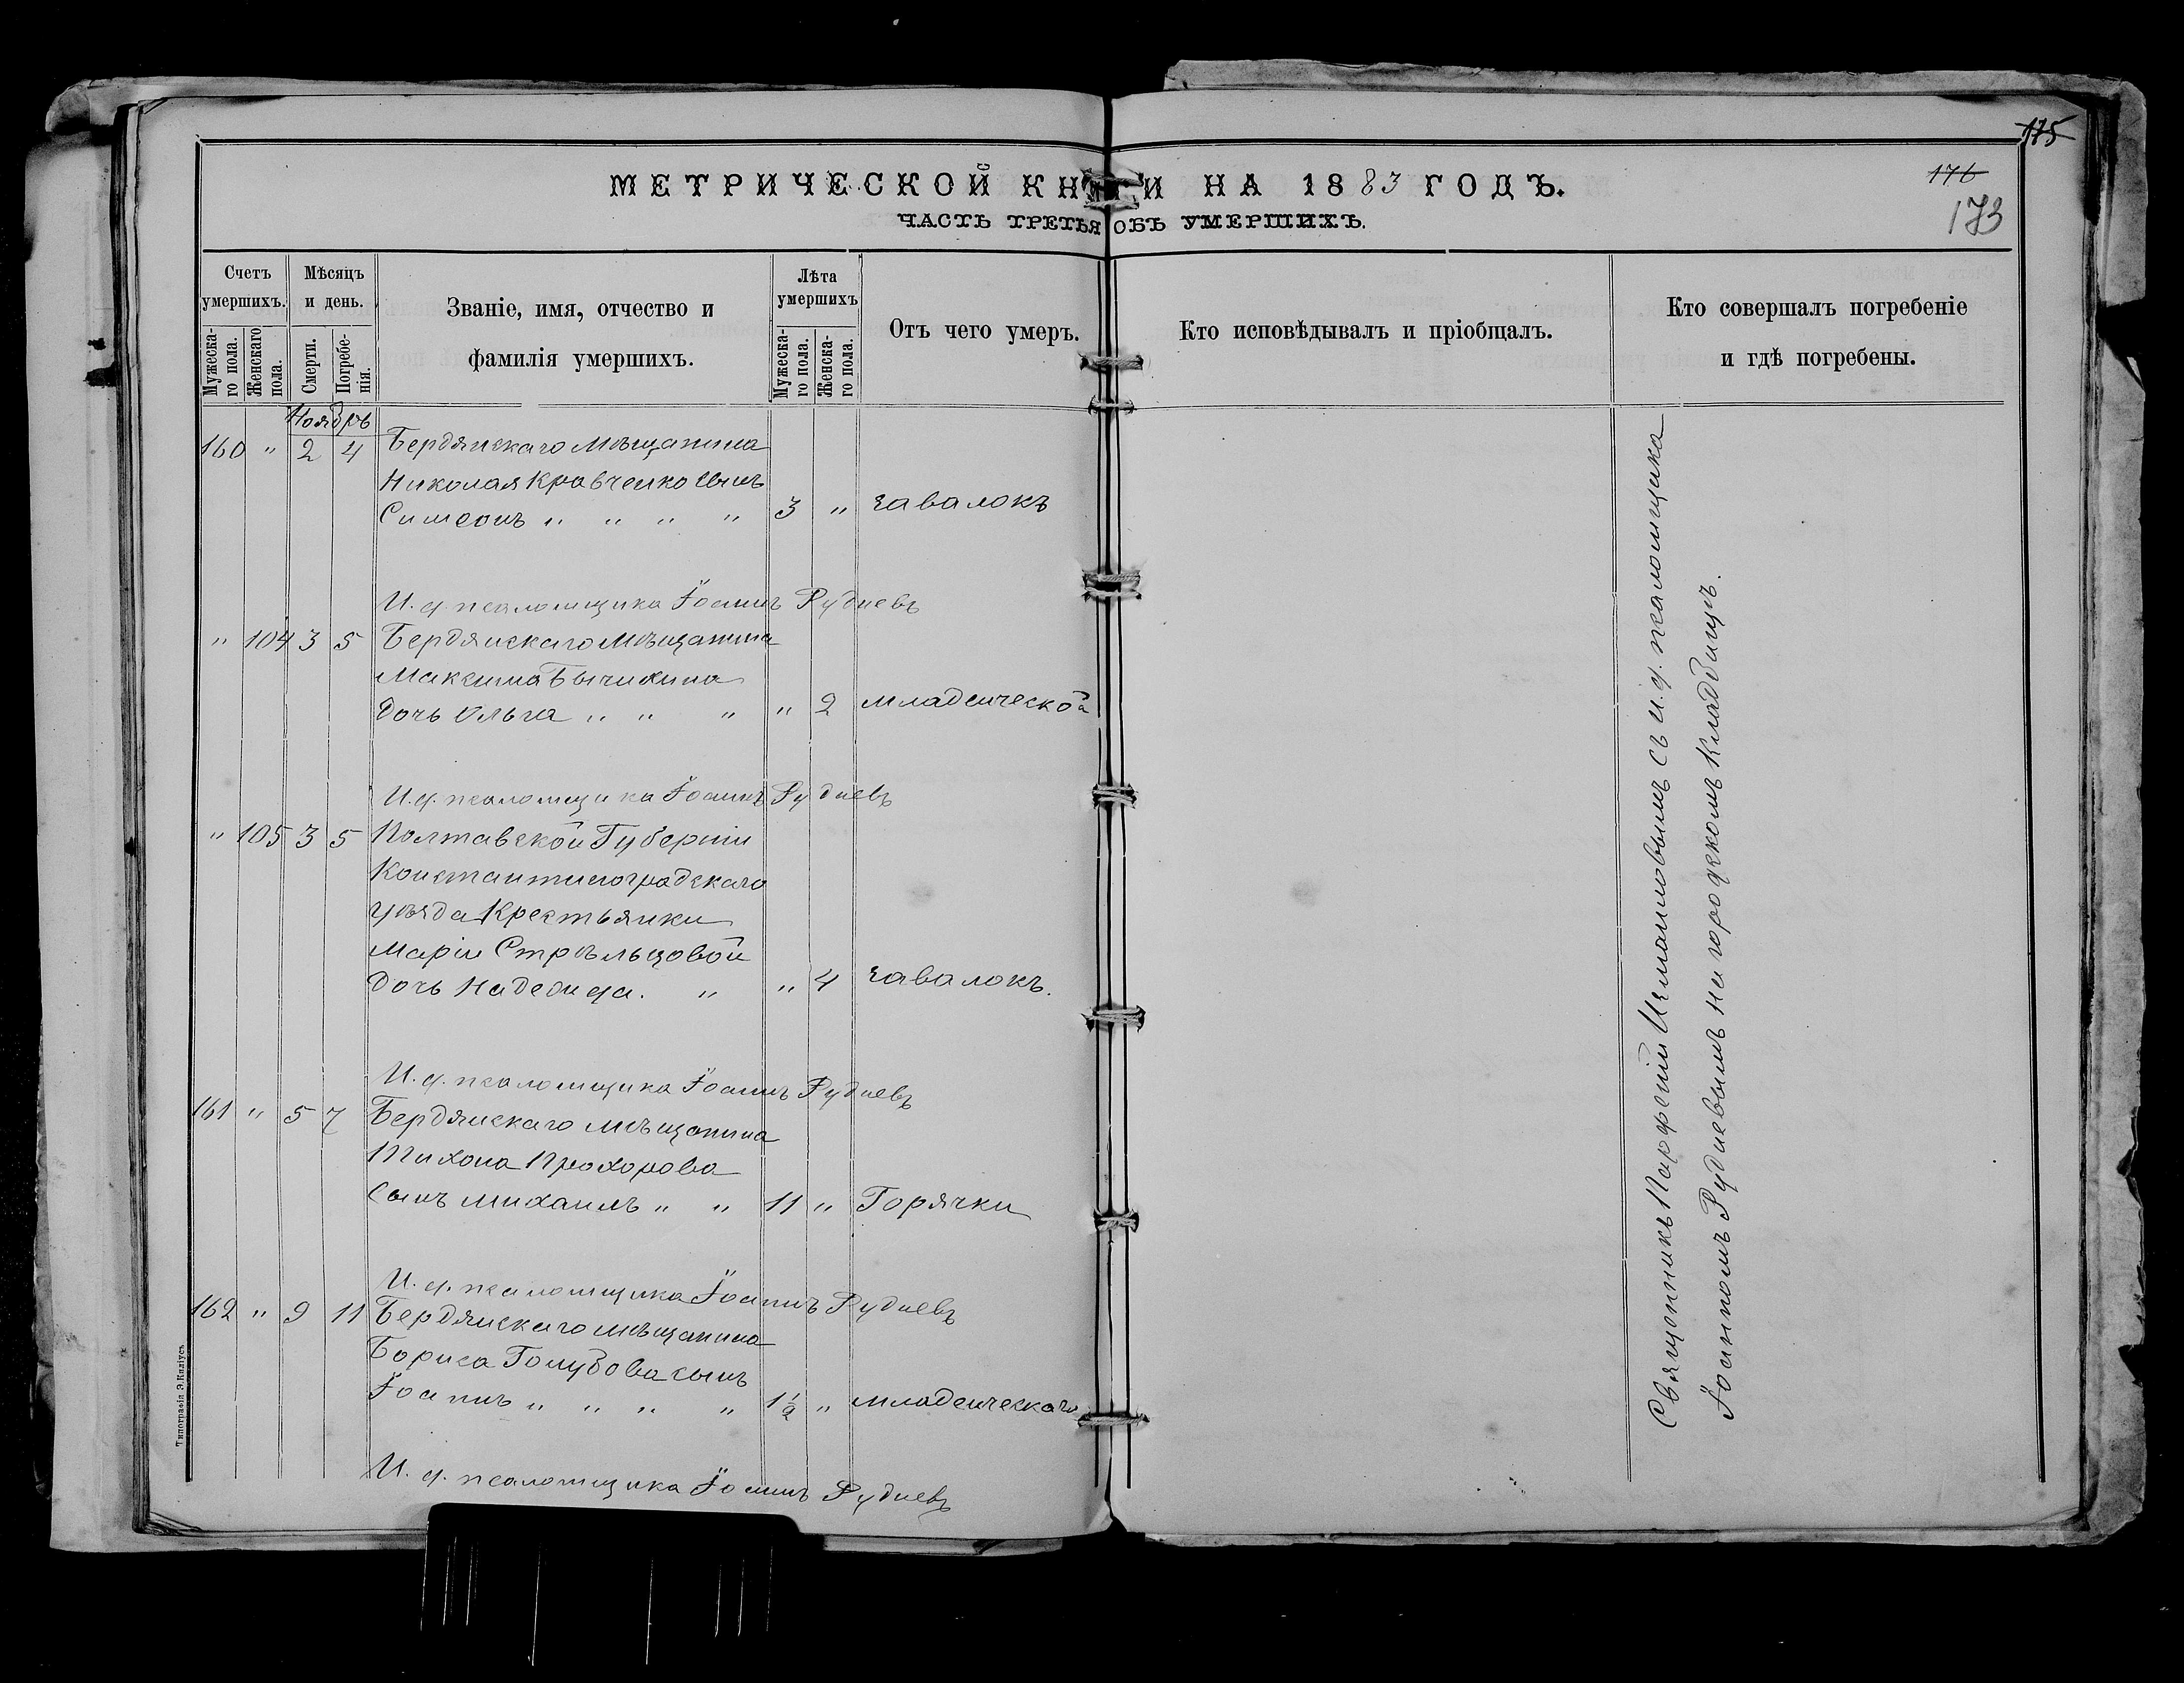 175
176
173
МЕТРИЧЕСКОЙ КНИГИ НА 1883 ГОДЪ.
ЧАСТЬ ТРЕТЬЯ ОБЪ УМЕРШИХЪ.
Счетъ умершихъ.
Мужеска-го пола.
Женскаго пола.
Мѣсяцъ и день.
Смерти.
Погребе-нія.
Званіе, имя, отчество и
фамилія умершихъ.
Лѣта умершихъ
Мужеска-го пола.
Женска-го пола.
Отъ чего умеръ.
Кто исповѣдывалъ и пріобщалъ.
Кто совершалъ погребеніе
и гдѣ погребены.
Ноябрь
160 " 2 4 Бердянскаго Мѣщанина
Николая Кравченко сынъ
Симеонъ " " " " 3 " завалокъ
И. д. псаломщика Іоаннъ Рудневъ
" 104 3 5 Бердянскаго Мѣщанина
Максима Бычихина
дочь Ольга " " " " 2 младенческой
И. д. псаломщика Іоаннъ Рудневъ
" 105 3 5 Полтавской Губерніи
Константиноградскаго
уѣзда Крестьянки
Маріи Стрѣльцовой
дочь Надежда. " " 4 завалокъ.
И. д. псаломщика Іоаннъ Рудневъ
161 " 5 7 Бердянскаго мѣщанина
Тихона Прохорова
сынъ Михаилъ " " 11 " Горячки
И. д. псаломщика Іоаннъ Рудневъ
162 " 9 11 Бердянскаго мѣщанина
Бориса Голубова сынъ
Іоаннъ " " " " 1 1/2 " младенческаго
И. д. псаломщика Іоаннъ Рудневъ
Священникъ Парфеній Измаиловымъ съ И. д. псаломщика
Іоанномъ Рудневымъ на городскомъ Кладбищѣ.
Типографія Э. Килiусъ